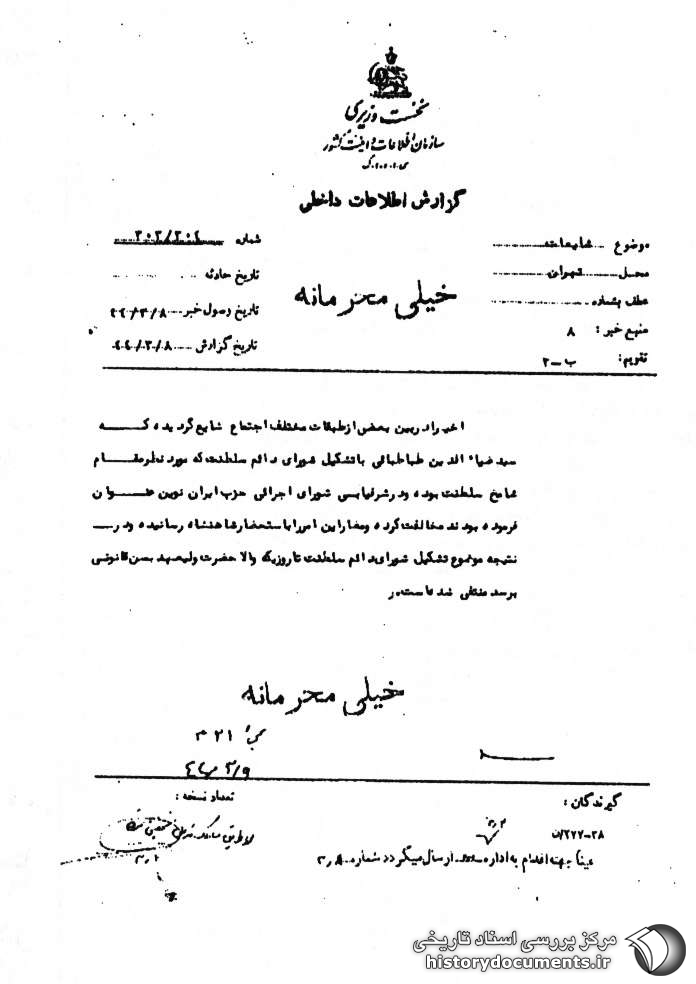 نخست وزیری
سازمان اطلاعات و امنیت کشور
س.ا.و.ا.ک
گزارش اطلاعات داخلی
موضوع شایعات
محل تهران
عطف بشماره
منبع خبر : ۸
تقویم: ب-۲
شماره ۳۰۲/۲۰۱
تاریخ حادثه
تاریخ وصول خبر ۴۴/۳/۸
تاریخ گزارش ۴۴/۳/۸
خیلی محرمانه
اخیراً در بین بعضی از طبقات مختلف اجتماع شایع گردیده که
سید ضیاء الدین طباطبائی با تشکیل شورای دائم سلطنت که مورد نظر مقام
شامخ سلطنت بوده و در شرفیابی شورای اجرائی حزب ایران نوین عنوان
فرموده بودند مخالفت کرده و مضار این امر را باستحضار شاهنشاه رسانیده و در
نتیجه موضوع تشکیل شورای دائم سلطنت تا روزیکه والاحضرت ولیعهد بسن قانونی
برسد منتفی شده است. ر
خیلی محرمانه
۲۱ ۳
۴۴ ۳/۹
گیرندگان :
تعداد نسخه :
۲۷۷-۳۸/ن
عیناً جهته اقدام به اداره ارسال میگردد شماره ۳٫۸
مرکز بررسی اسناد تاریخی
historydocuments.ir